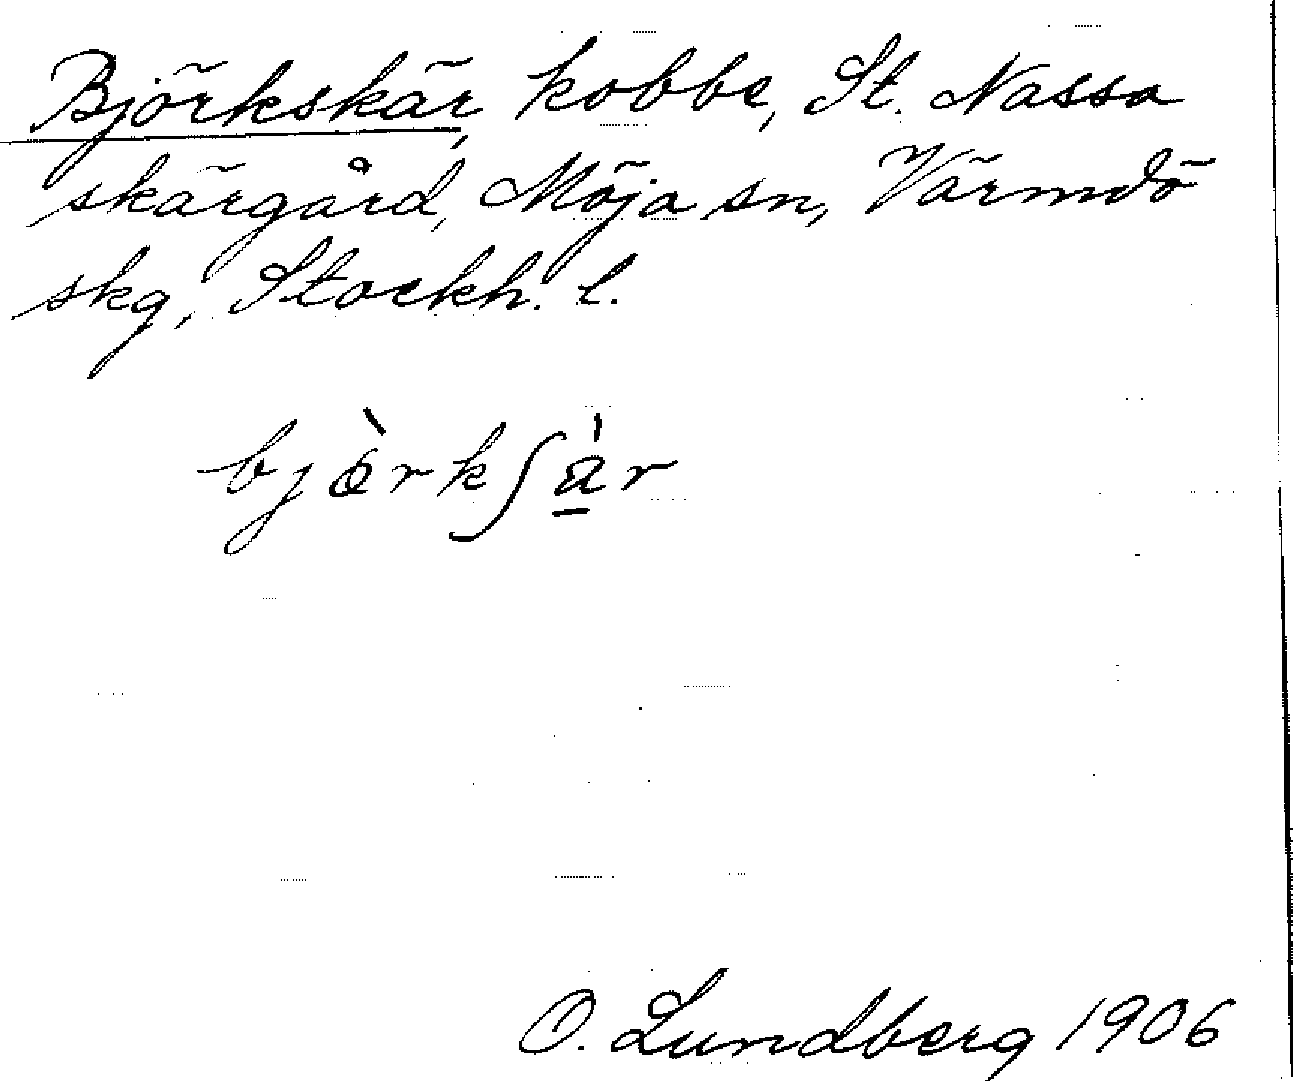 Björkskär, kobbe, St. Nassa
skärgård, Möja sn, Värmdö
skg, Stockh. l.
bjò̀rkʃä̱́r
O. Lundberg 1906